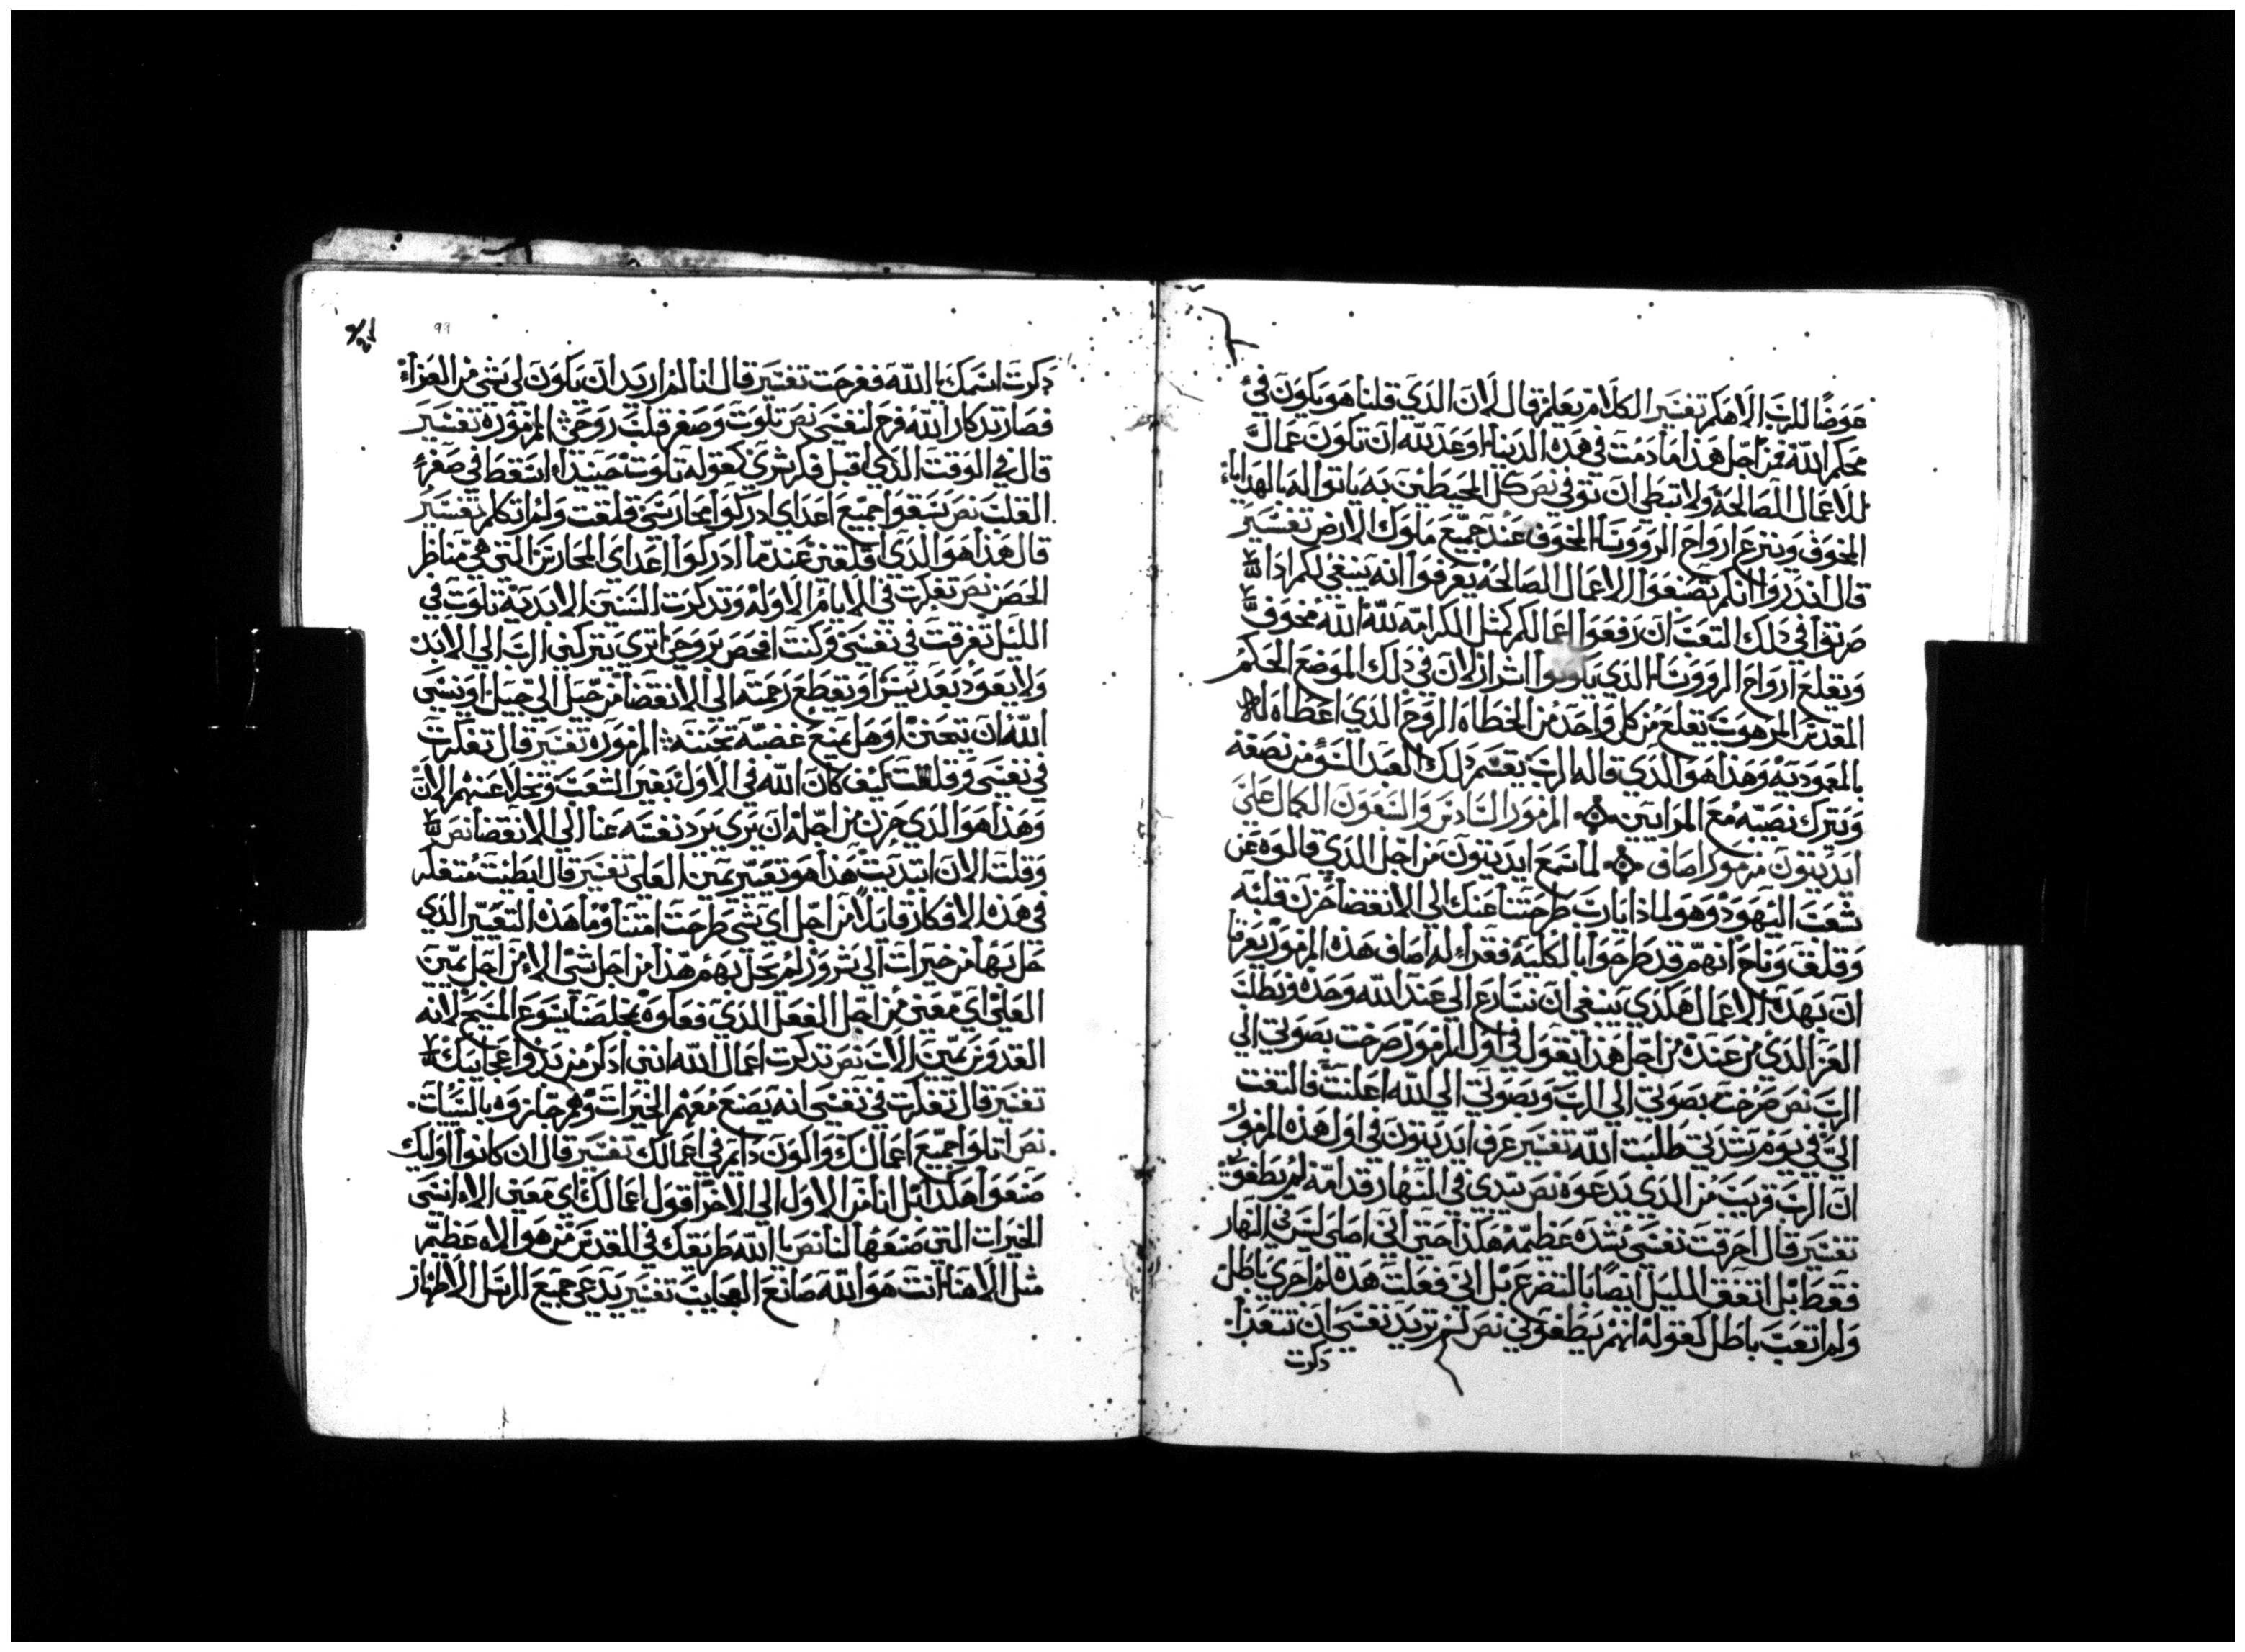 عوضًا للرب الاهكم تفسير الكلام يعلم قال لان الذي قلنا هو يكون في
محكم الله فمن اجل هذا ما دمت في هذه الدنيا اوعد لله ان تكون عمالك
للاعمال الصالحة ولا تبطي ان توفي نص كل المحيطين به ياتوا له بالهدايا
المخوف وينزع ارواح الرووسا المخوف عند جميع ملوك الارض تفسير
قال اندروا انكم تصنعوا الاعمال الصالحة يعرفوا انه ينبغي لكم اذا
صرتوا في ذلك التعب ان رفعوا اعمالكم كمثل الكرامه لله الله مخوف
ويقلع ارواح الرووسا الذي يكونوا اشرار لان في ذلك الموضع الحكم
المقدس المرهوب يقلع من كل واحد من الخطاه الروح الذي اعطاه له
بالمعموديه وهذا هو الذي قاله الرب يقسم ذلك العبد السو من نصفه
ويترك نصيبه مع المرايين المزمور السادس والسبعون الكمال علي
ايديتون مزمور اصاف لما سمع ايديتون من اجل الذي قالوه عن
شعب اليهود وهو لماذا يارب طرحتنا عنك الي الانقضا حزن قلبه
وقلق وناح انهم قد طرحوا بالكليه فقراء له اصاف هذه المزمور يعرفنا
ان بهذه الاعمال هكذي ينبغي ان نسارع الي عند الله وحده ونطلب
العزا الذي من عنده من اجل هذا يقول في اول المزمور صرخت بصوتي الي
الرب نص صرخت بصوتي الي الرب وبصوتي الي الله اعلنت فالتفت
الي في يوم شدتي طلبت الله تفسير عرف ايديتون في اول هذه المزمور
ان الرب قريب من الذي يدعوه نص بيدي في النهار قدامه لم يطغوني
تفسير قال احرقت نفسي بشده عظيمه هكذا حتي اني اصلي ليس في النهار
فقط بل اتفق الليل ايضًا بالتضرع بل اني فعلت هذه لم اجري باطل
ولم اتعب باطل كقوله انهم يطغوني نص لم تريد نفسي ان تتعزا
ذكرت
٩٩
ذكرت اسمك يا الله ففرحت تفسير قال انا لم اريد ان يكون لي شي من العزاء
فصار تذكار الله فرح لنفسي نص تلوت وصغر قلب روحي المزموره تفسير
قال في الوقت الذي اقبل فكر شري كقوله تلوت حينيذ اسقط في صغر
القلب نص سبقوا جميع اعداي ادركوا محارسي قلقت ولم اتكلم تفسير
قال هذا هو الذي اقلقني عندما ادركوا اعداي المحارس التي هي مناظر
الحصن نص تفكرت في الايام الاوله وتذكرت السنين الابديه تلوت في
الليل تفرقت في نفسي وكنت افحص بروحي اتري يتركني الرب الي الابد
ولا يعود بعد يسر او يقطع رحمته الي الانقضا من جيل الي جيل او ينسي
الله ان يتحنن او هل يمنع غضبه تحننه المزموره تفسير قال تفكرت
في نفسي وقلت كيف كان الله في الاول بغير الشعب وتخلا عنهم الان
وهذا هو الذي حزن من اجله ان يري يرد نفسه عنا الي الانقضا نص
وقلت الان ابتديت هذا هو تغيير يمين العلي تفسير قال ابطيت متفكر
في هذه الافكار قايلًا من اجل اي شي طرحت امتنا وما هذه التغيير الذي
حل بها من خيرات الي شرور لم يحل بهم هذا من اجل شي الا من اجل يمين
العلي اي معني من اجل الفعل الذي فعلوه بمخلصنا يسوع المسيح لانه
القدوس يمين الاب نص تذكرت اعمال الله انني اذكر من بدوا عجايبك
تفسير قال تفكرت في نفسي انه يصنع معهم الخيرات وهم جازوه بالسيات
نص اتلوا جميع اعمالك واكون دايم في اعمالك تفسير قال ان كانوا اوليك
صنعوا هكذا بل انا من الاول الي الاخر اقول اعمالك اي معني الا انسي
الخيرات التي صنعها لنا نص يا الله طريقك في القدس من هو الاه عظيم
مثل الاهنا انت هو الله صانع العجايب تفسير يدعي جميع الرسل الاطهار